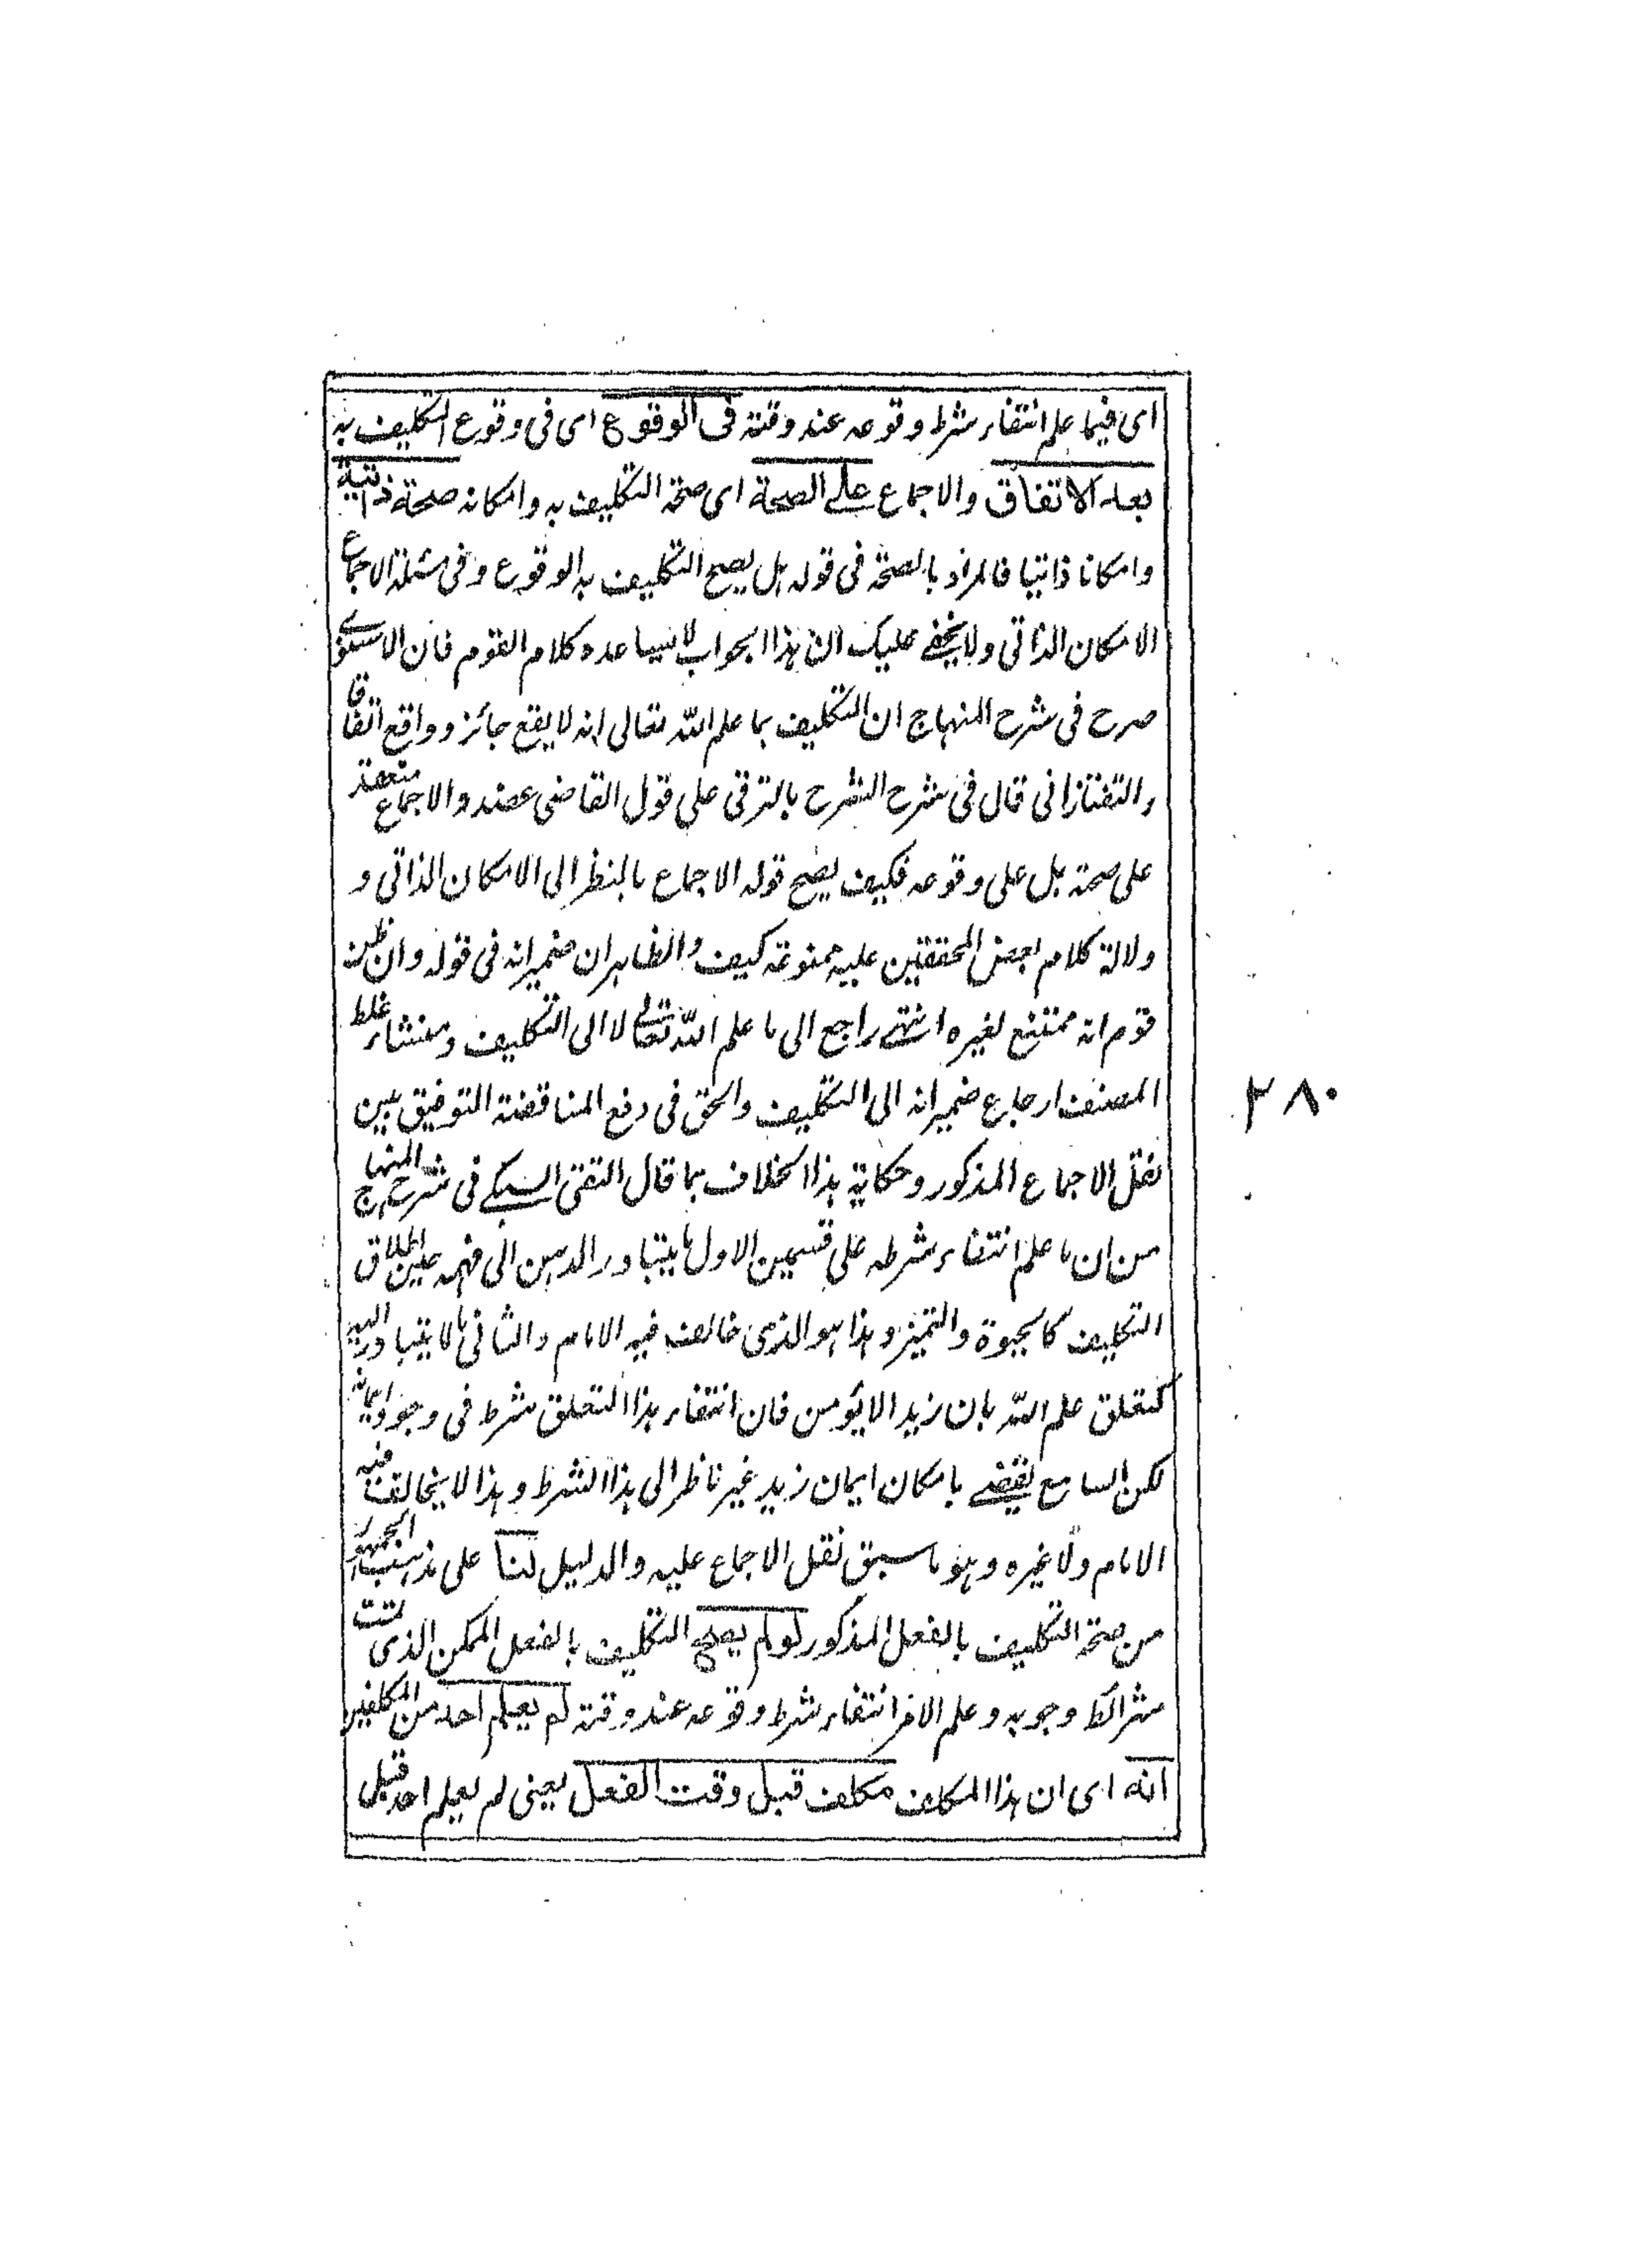 اى فيما علم انتفاء شرط وقوعه عند وقته فى الوقوع اى فى وقوع التكليف به
بعد الاتفاق والاجماع على الصحة اى صحة التكليف به وامكانه صحة ذاتية
وامكانا ذاتيا فالمراد بالصحة فى قوله هل يصح التكليف به الوقوع وفى مسئلة الاجماع
الامكان الذاتى ولا يخفى عليك ان هذا الجواب لا يساعده كلام القوم فان الاسنوى
صرح فى شرح المنهاج ان التكليف بما علم الله تعالى انه لا يقع جائز وواقع اتفاقا
والتفتازانى قال فى شرح الشرح بالترقى على قول القاضى عضد والاجماع منعقد
على صحة بل على وقوعه فكيف يصح قوله الاجماع بالنظر الى الامكان الذاتى و
دلالة كلام بعض المحققين عليه ممنوعة كيف والظاهر ان ضمير انه فى قوله وان ظن
قوم انه ممتنع لغيره انتهى راجع الى ما علم الله تعالى لا الى التكليف ومنشاء غلط
المصنف ارجاع ضمير انه الى التكليف والحق فى دفع المناقضة التوفيق بين
نقل الاجماع المذكور وحكاية هذا الخلاف بما قال التقى السبكى فى شرح المنهاج
من ان ما علم انتفاء شرطه على قسمين الاول ما يتبادر الذهن الى فهمه حين اطلاق
التكليف كالحيوة والتميز وهذا هو الذى خالف فيه الامام والثانى ما لا يتبادر اليه
كتعلق علم الله بان زيدا لا يؤمن فان انتفاء هذا التعلق شرط فى وجود ايمانه
لكن السامع يقضى بامكان ايمان زيد غير ناظر الى هذا الشرط وهذا لا يخالف فيه
الامام ولا غيره وهو ما سبق نقل الاجماع عليه والدليل لنا على مذهب الجمهور
من صحة التكليف بالفعل المذكور لو لم يصح التكليف بالفعل الممكن الذى تمت
شرائط وجوبه وعلم الامر انتفاء شرط وقوعه عند وقته لم يعلم احد من المكلفين
انه اى ان هذا المكلف مكلف قبل وقت الفعل يعنى لم يعلم احد قبل
٣٨٠